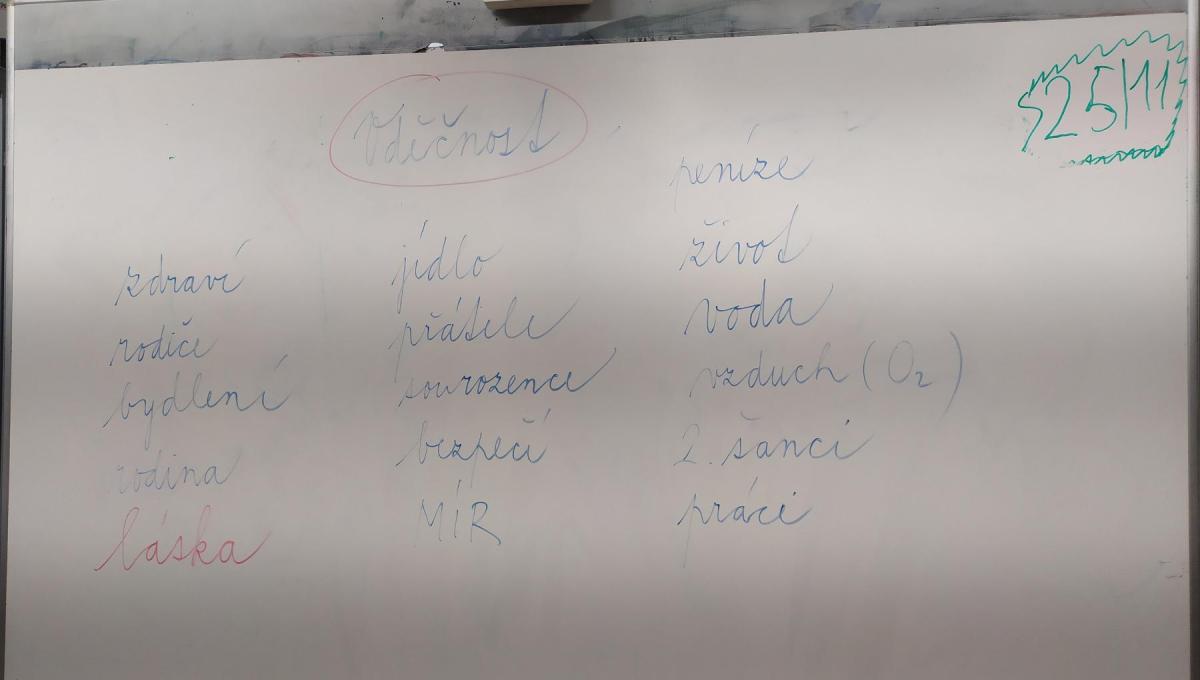 Vděčnost
25/11
zdraví
rodiče
bydlení
rodina
láska
jídlo
přátele
sourozence
bezpečí
MÍR
peníze
život
voda
vzduch (O₂)
2. šanci
práci